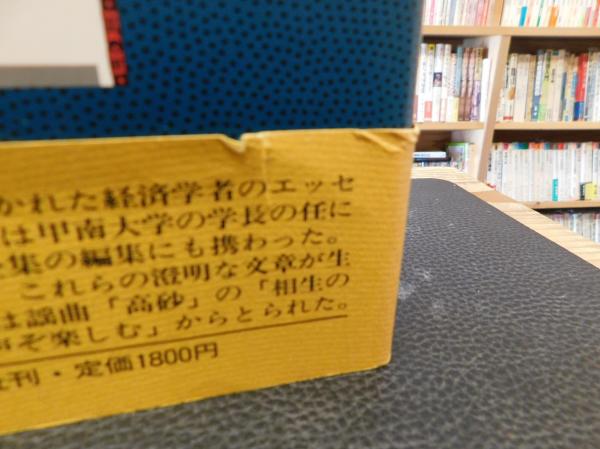 かれた経済学者のエッセ
は甲南大学の学長の任に
集の編集にも携わった。
これらの澄明な文章が生
は謡曲「高砂」の「相生の
ぞ楽しむ」からとられた。
刊・定価1800円